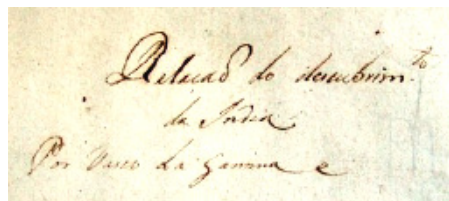 Relacaõ do descubrim.to
da India
Por Vasco da Gamma e